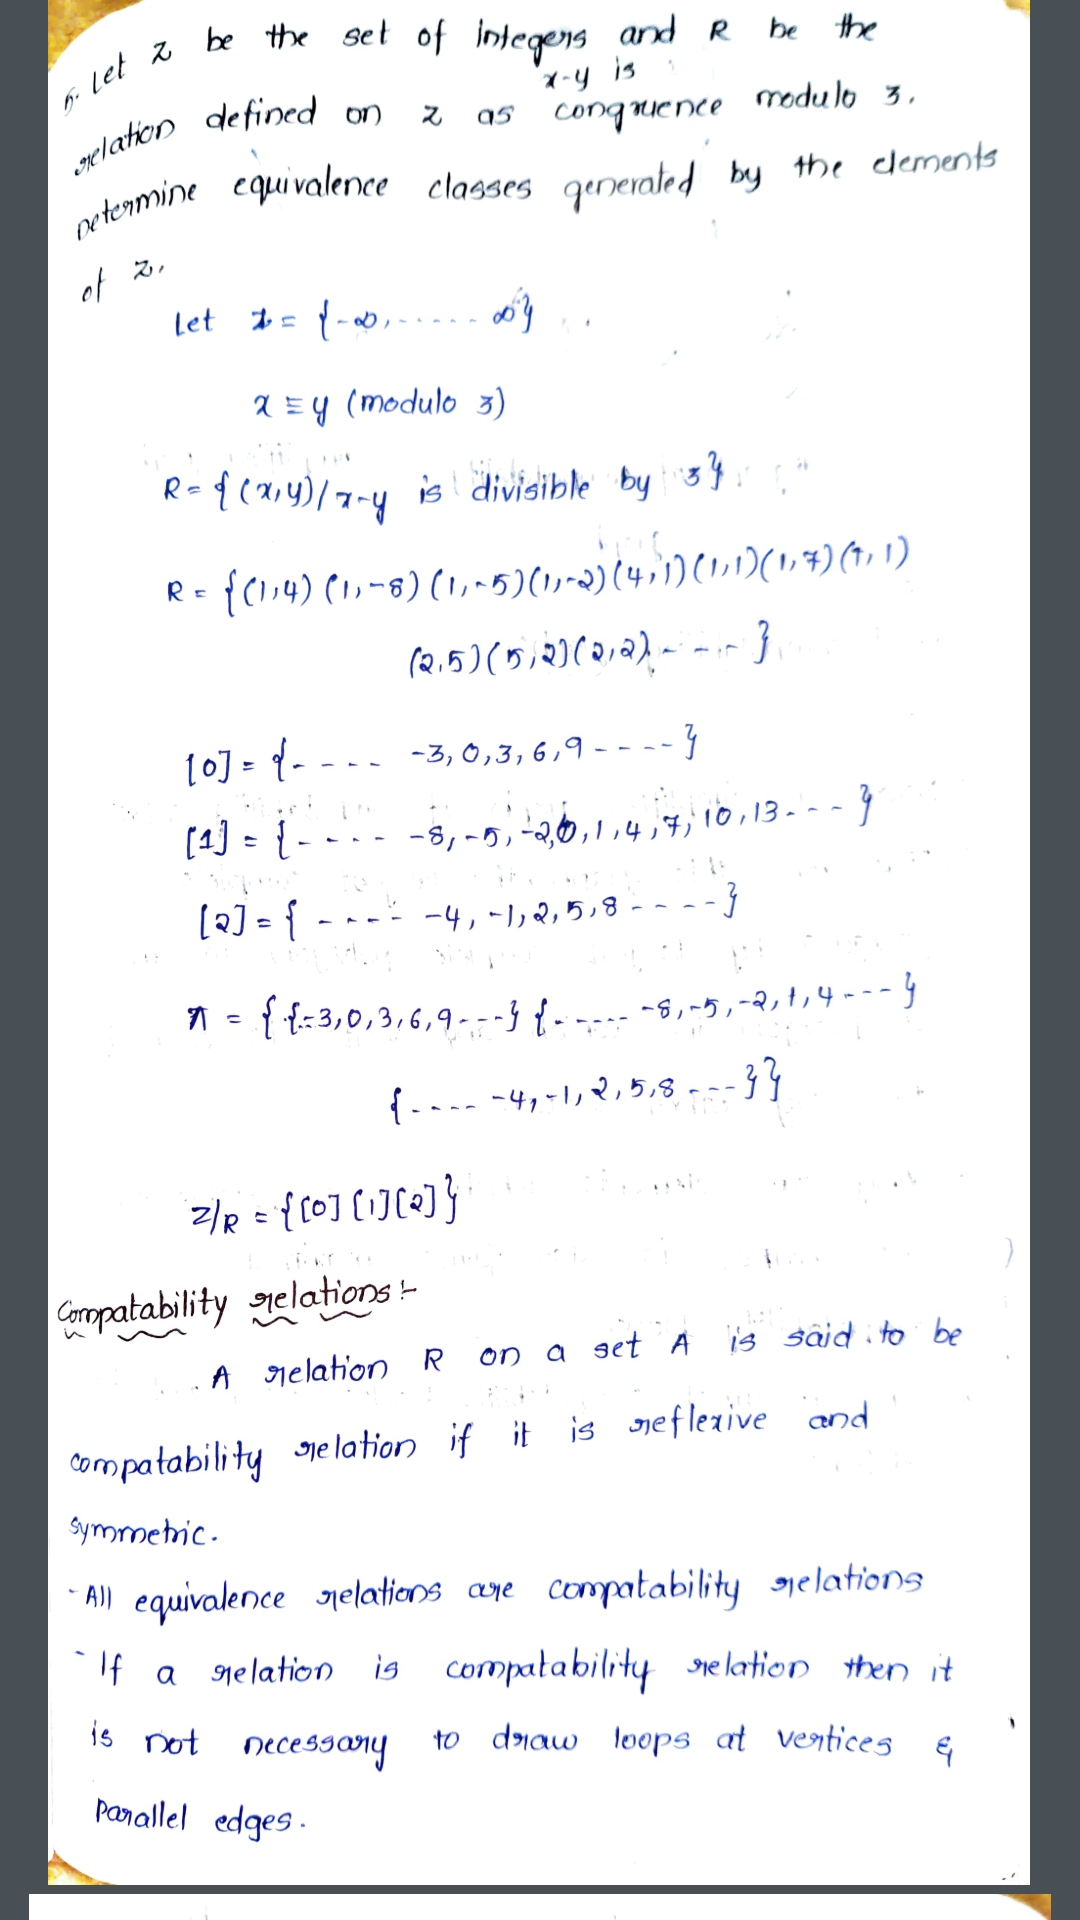 6. Let Z be the set of integers and R be the
x-y is
relation defined on Z as congruence modulo 3.
Determine equivalence classes generated by the elements
of Z.
Let Z = {-∞, ...... ∞}
x ≡ y (modulo 3)
R = {(x,y)/x-y is divisible by 3}
R = {(1,4) (1,-8) (1,-5)(1,-2)(4,1)(1,1)(1,7)(7,1)
(2,5)(5,2)(2,2) - - - - }
[0] = {- - - - - -3, 0, 3, 6, 9 - - - - }
[1] = {- - - - - -8, -5, -2, 1, 4, 7, 10, 13 - - - }
[2] = { - - - - - -4, -1, 2, 5, 8 - - - - }
π = { {-3,0,3,6,9---} {------ -8,-5,-2,1,4 --- }
{----- -4,-1,2,5,8 ---}}
Z/R = {[0] [1] [2]}
Compatability relations :-
A relation R on a set A is said to be
compatability relation if it is reflexive and
symmetric.
- All equivalence relations are compatability relations
- If a relation is compatability relation then it
is not necessary to draw loops at vertices &
Parallel edges.